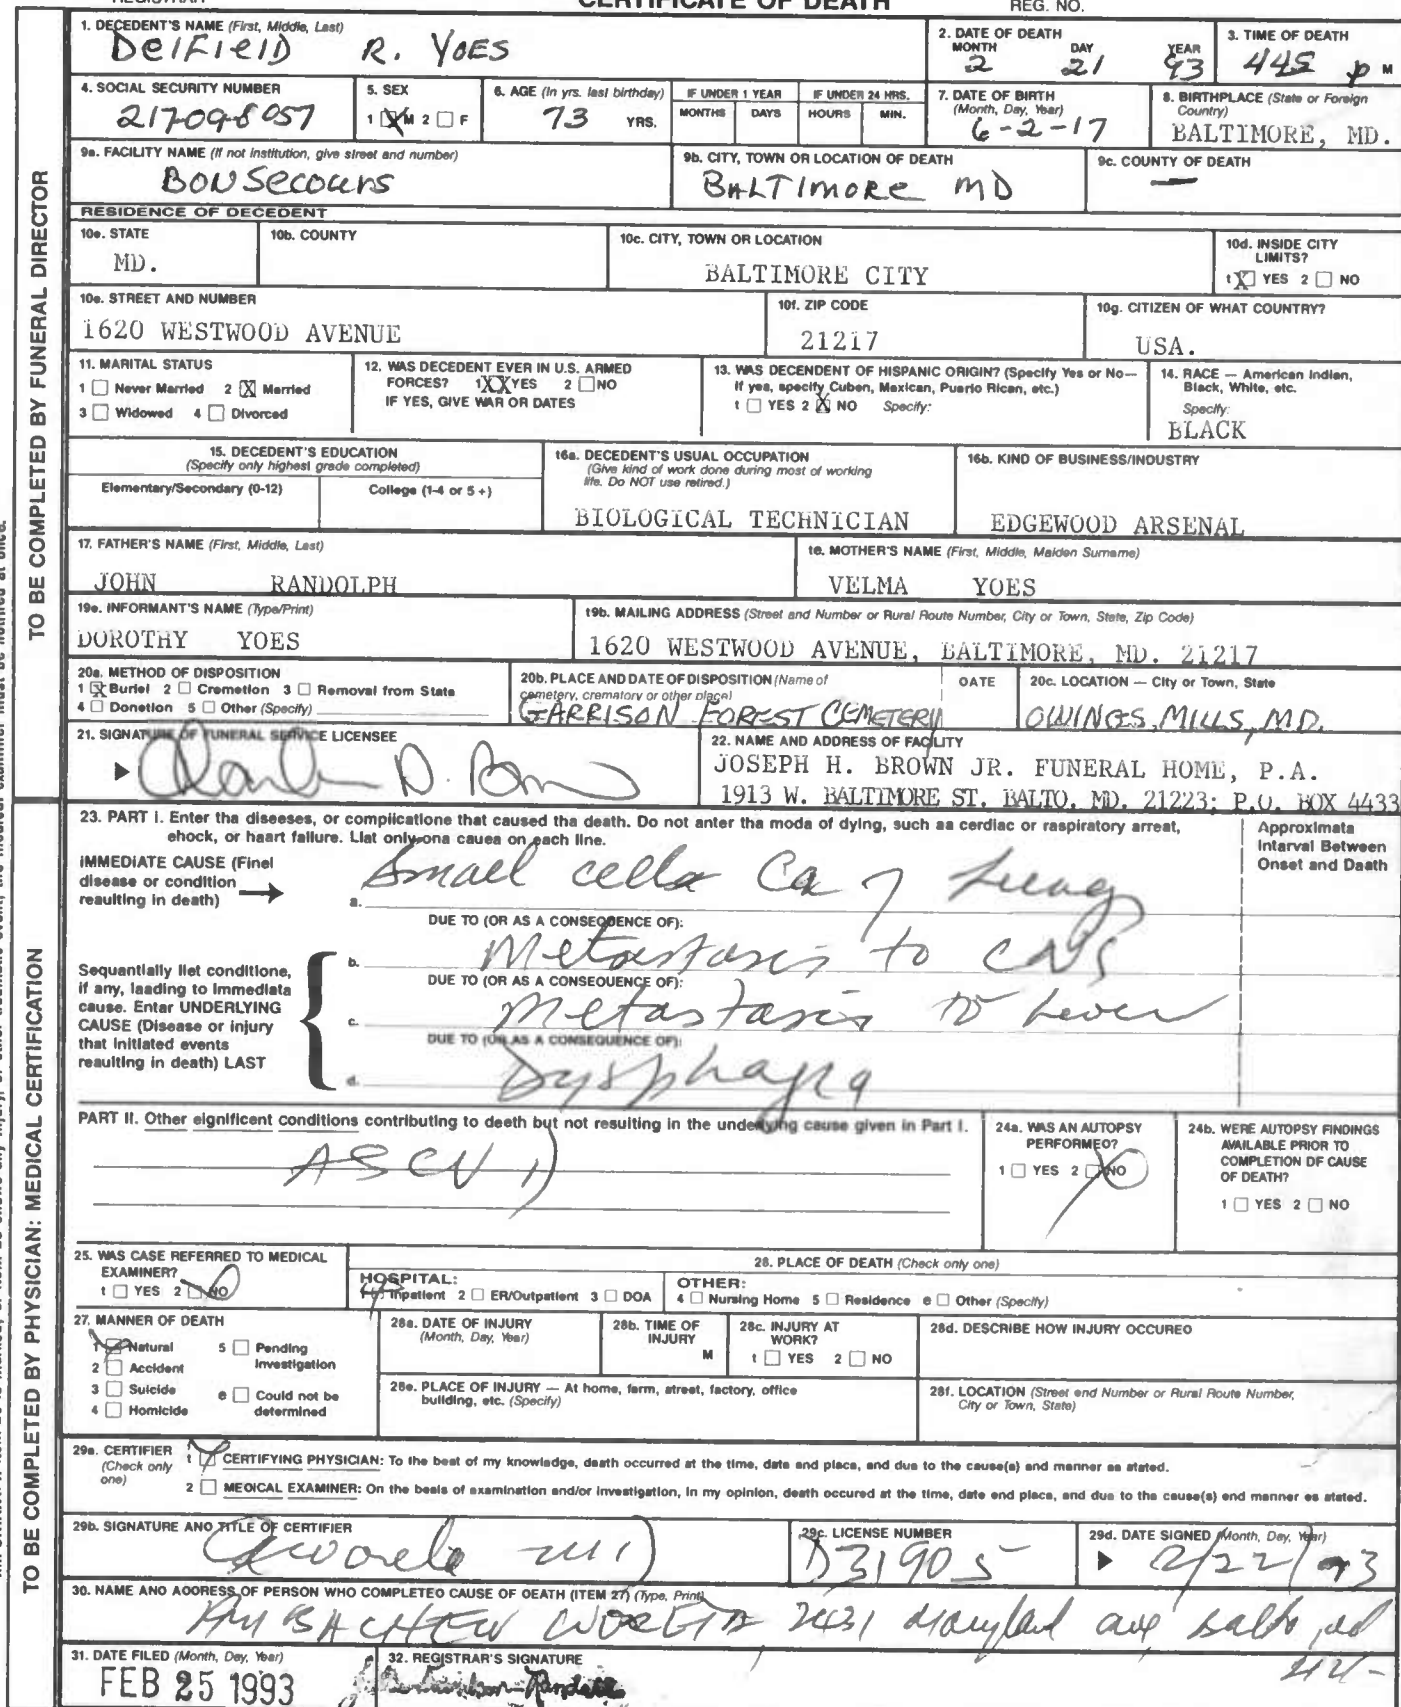 REGISTRAR
CERTIFICATE OF DEATH
REG. NO.
1. DECEDENT'S NAME (First, Middle, Last)
DelFielD R. YOES
2. DATE OF DEATH
MONTH DAY YEAR
2 21 93
3. TIME OF DEATH
445 p M
4. SOCIAL SECURITY NUMBER
217-09-8057
5. SEX
1 ☒ M 2 ☐ F
6. AGE (In yrs. last birthday)
73 YRS.
IF UNDER 1 YEAR
MONTHS DAYS
IF UNDER 24 HRS.
HOURS MIN.
7. DATE OF BIRTH
(Month, Day, Year)
6-2-17
8. BIRTHPLACE (State or Foreign
Country)
BALTIMORE, MD.
9a. FACILITY NAME (If not institution, give street and number)
BON Secours
9b. CITY, TOWN OR LOCATION OF DEATH
BALTIMORE MD
9c. COUNTY OF DEATH
—
RESIDENCE OF DECEDENT
10a. STATE
MD.
10b. COUNTY
10c. CITY, TOWN OR LOCATION
BALTIMORE CITY
10d. INSIDE CITY
LIMITS?
1 ☒ YES 2 ☐ NO
10e. STREET AND NUMBER
1620 WESTWOOD AVENUE
10f. ZIP CODE
21217
10g. CITIZEN OF WHAT COUNTRY?
USA.
11. MARITAL STATUS
1 ☐ Never Married 2 ☒ Married
3 ☐ Widowed 4 ☐ Divorced
12. WAS DECEDENT EVER IN U.S. ARMED
FORCES? 1 ☒ YES 2 ☐ NO
IF YES, GIVE WAR OR DATES
13. WAS DECENDENT OF HISPANIC ORIGIN? (Specify Yes or No—
If yes, specify Cuben, Mexican, Puerto Rican, etc.)
1 ☐ YES 2 ☒ NO Specify:
14. RACE — American Indian,
Black, White, etc.
Specify:
BLACK
15. DECEDENT'S EDUCATION
(Specify only highest grade completed)
Elementary/Secondary (0-12) College (1-4 or 5+)
16a. DECEDENT'S USUAL OCCUPATION
(Give kind of work done during most of working
life. Do NOT use retired.)
BIOLOGICAL TECHNICIAN
16b. KIND OF BUSINESS/INDUSTRY
EDGEWOOD ARSENAL
17. FATHER'S NAME (First, Middle, Last)
JOHN RANDOLPH
18. MOTHER'S NAME (First, Middle, Maiden Surname)
VELMA YOES
19a. INFORMANT'S NAME (Type/Print)
DOROTHY YOES
19b. MAILING ADDRESS (Street and Number or Rural Route Number, City or Town, State, Zip Code)
1620 WESTWOOD AVENUE, BALTIMORE, MD. 21217
20a. METHOD OF DISPOSITION
1 ☒ Buriel 2 ☐ Cremetion 3 ☐ Removal from State
4 ☐ Donetion 5 ☐ Other (Specify)
20b. PLACE AND DATE OF DISPOSITION (Name of
cemetery, crematory or other place)
GARRISON FOREST CEMETERY
DATE
20c. LOCATION — City or Town, State
OWINGS, MILLS, MD.
21. SIGNATURE OF FUNERAL SERVICE LICENSEE
22. NAME AND ADDRESS OF FACILITY
JOSEPH H. BROWN JR. FUNERAL HOME, P.A.
1913 W. BALTIMORE ST. BALTO, MD. 21223; P.O. BOX 4433
TO BE COMPLETED BY FUNERAL DIRECTOR
23. PART I. Enter tha diseases, or complicatione that caused tha death. Do not anter tha moda of dying, such aa cerdiac or raspiratory arreet,
ehock, or haart failure. Llat only ona cauea on each line.
Approximata
Interval Between
Onset and Daath
IMMEDIATE CAUSE (Finel
disease or condition
resulting in death)
a. Small cella Ca of Lung
DUE TO (OR AS A CONSEQUENCE OF):
b. Metastasis to CNS
Sequantially liet conditione,
if any, laading to Immediata
cause. Entar UNDERLYING
CAUSE (Disease or injury
that initiated events
reaulting in death) LAST
DUE TO (OR AS A CONSEQUENCE OF):
c. Metastasis to Liver
DUE TO (OR AS A CONSEQUENCE OF):
d. Dysphagia
PART II. Other eignificent conditions contributing to deeth but not resulting in the underlying cause given in Part I.
ASCVD
24a. WAS AN AUTOPSY
PERFORMED?
1 ☐ YES 2 ☒ NO
24b. WERE AUTOPSY FINDINGS
AVAILABLE PRIOR TO
COMPLETION OF CAUSE
OF DEATH?
1 ☐ YES 2 ☐ NO
25. WAS CASE REFERRED TO MEDICAL
EXAMINER?
1 ☐ YES 2 ☒ NO
26. PLACE OF DEATH (Check only one)
HOSPITAL:
1 ☒ Inpatient 2 ☐ ER/Outpatient 3 ☐ DOA
OTHER:
4 ☐ Nursing Home 5 ☐ Residence 6 ☐ Other (Specify)
27. MANNER OF DEATH
1 ☒ Natural 5 ☐ Pending
Investigation
2 ☐ Accident
3 ☐ Suicide 6 ☐ Could not be
determined
4 ☐ Homicide
28a. DATE OF INJURY
(Month, Day, Year)
28b. TIME OF
INJURY
M
28c. INJURY AT
WORK?
1 ☐ YES 2 ☐ NO
28d. DESCRIBE HOW INJURY OCCURED
28e. PLACE OF INJURY — At home, farm, street, factory, office
building, etc. (Specify)
28f. LOCATION (Street end Number or Rural Route Number,
City or Town, State)
29a. CERTIFIER
(Check only
one)
1 ☒ CERTIFYING PHYSICIAN: To the best of my knowladge, daath occurred at the time, data and placa, and due to the cause(a) and manner as atated.
2 ☐ MEDICAL EXAMINER: On the besis of axamination and/or investigation, in my opinion, death occured at the time, date end place, and due to the cause(s) end manner es atated.
29b. SIGNATURE AND TITLE OF CERTIFIER
29c. LICENSE NUMBER
D31905
29d. DATE SIGNED (Month, Day, Year)
2/22/93
30. NAME AND ADDRESS OF PERSON WHO COMPLETED CAUSE OF DEATH (ITEM 27) (Type, Print)
AMBACHEW WORETA 2431 Maryland ave, balto md
212-
31. DATE FILED (Month, Day, Year)
FEB 25 1993
32. REGISTRAR'S SIGNATURE
TO BE COMPLETED BY PHYSICIAN: MEDICAL CERTIFICATION